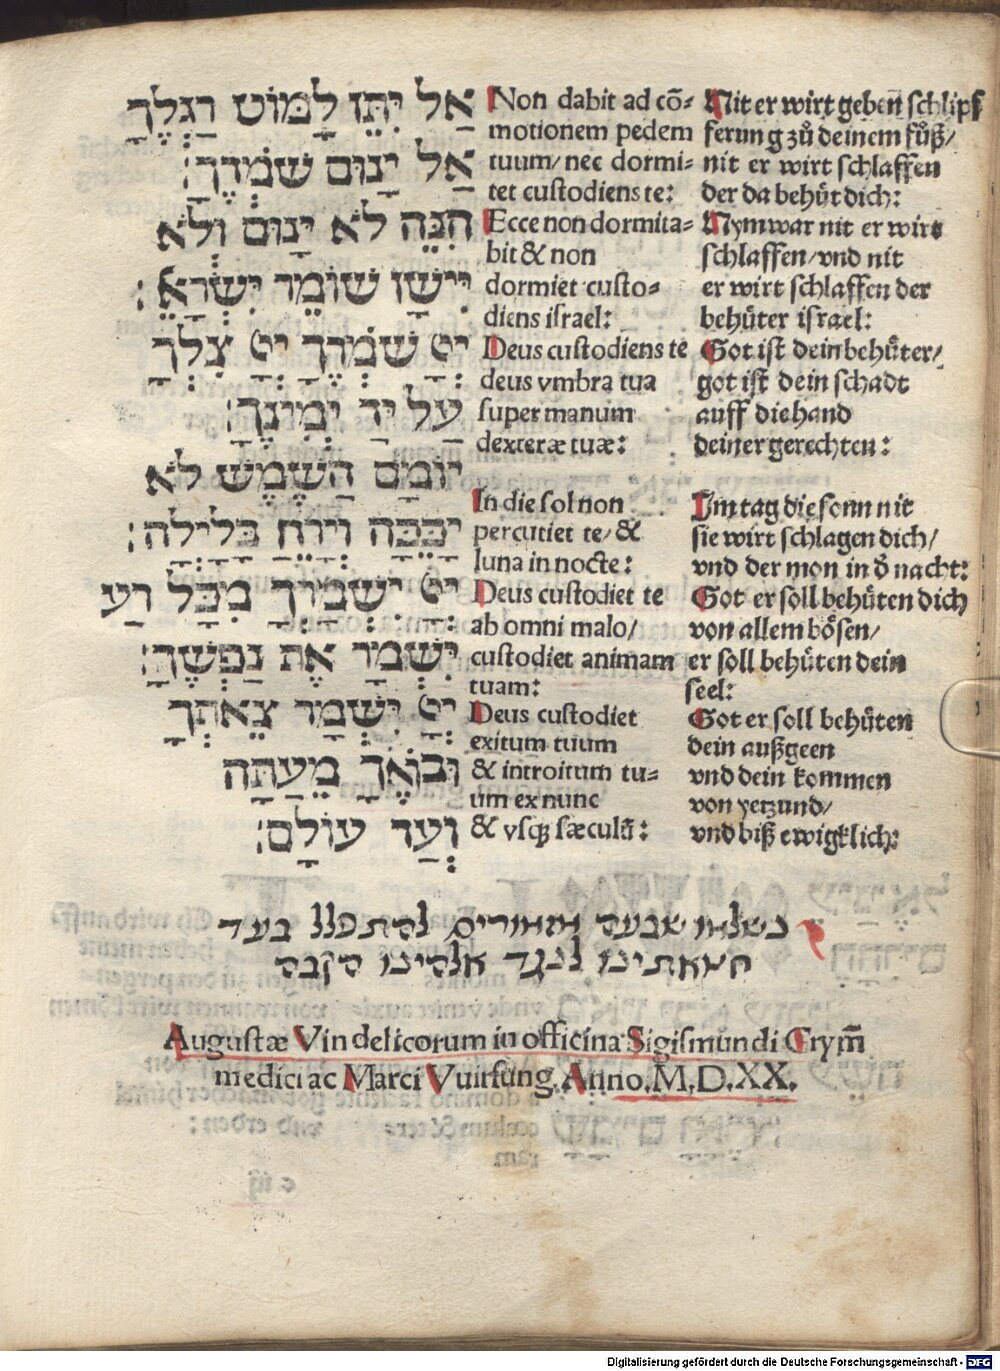 אַל יִתֵּן לַמּוֹט רַגְלֶךָ
אַל יָנוּם שֹׁמְרֶךָ׃
הִנֵּה לֹא יָנוּם וְלֹא
יִישָׁן שׁוֹמֵר יִשְׂרָאֵל׃
שֹׁמְרֶךָ צִלְּךָ
עַל יַד יְמִינֶךָ׃
יוֹמָם הַשֶּׁמֶשׁ לֹא
יַכֶּכָּה וְיָרֵחַ בַּלָּיְלָה׃
יִשְׁמָרְךָ מִכָּל רַע
יִשְׁמֹר אֶת נַפְשֶׁךָ׃
יִשְׁמָר צֵאתְךָ
וּבֹאֶךָ מֵעַתָּה
וְעַד עוֹלָם׃
Non dabit ad cō-
motionem pedem
tuum/ nec dormi-
tet custodiens te:
Ecce non dormita-
bit & non
dormiet custo-
diens israel:
Deus custodiens te
deus vmbra tua
super manum
dexteræ tuæ:
In die sol non
percutiet te/ &
luna in nocte:
Deus custodiet te
ab omni malo/
custodiet animam
tuam:
Deus custodiet
exitum tuum
& introitum tu-
um ex nunc
& vsq; sæculū:
Nit er wirt geben schlipf
ferung zů deinem fůß/
nit er wirt schlaffen
der da behüt dich:
Nym war nit er wirt
schlaffen/ vnd nit
er wirt schlaffen der
behüter israel:
Got ist dein behüter/
got ist dein schadt
auff die hand
deiner gerechten:
Im tag die sonn nit
sie wirt schlagen dich/
vnd der mon in d̓ nacht:
Got er soll behüten dich
von allem bösen/
er soll behüten dein
seel:
Got er soll behüten
dein außgeen
vnd dein kommen
von yetzund/
vnd biß ewigklich:
נשלמו שבעה מזמורים להתפלל בעד
חטאתינו לנגד אלהינו הקבה
Augustæ Vindelicorum in officina Sigismundi Grym̄
medici ac Marci Vuirsung, Anno. M.D.XX.
c iij
Digitalisierung gefördert durch die Deutsche Forschungsgemeinschaft - DFG